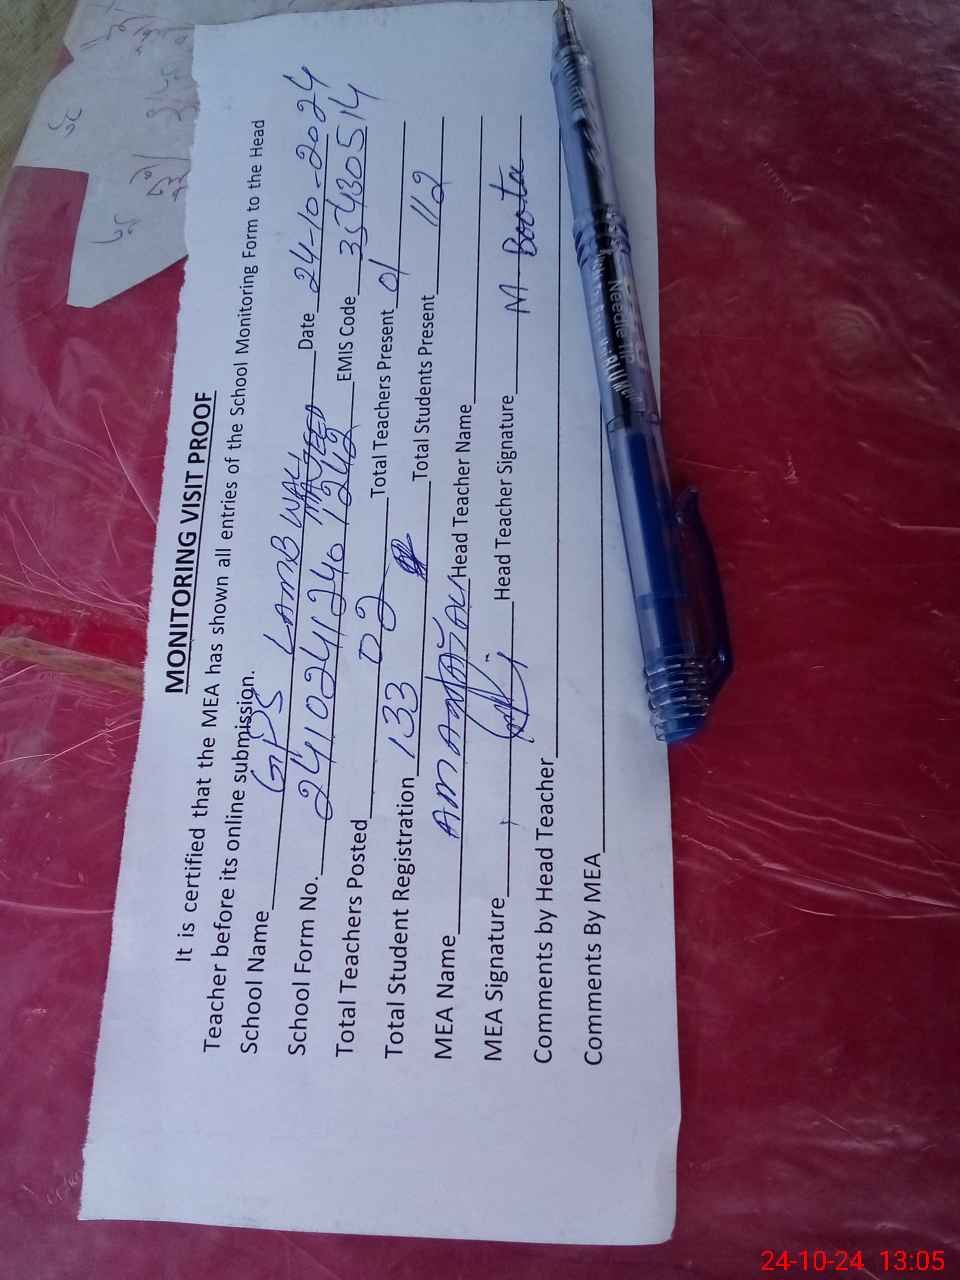 MONITORING VISIT PROOF
It is certified that the MEA has shown all entries of the School Monitoring Form to the Head
Teacher before its online submission.
School Name GPS LAMB WALI MAJEED Date 24-10-2024
School Form No. 2410241240 1242 EMIS Code 35430514
Total Teachers Posted 02 Total Teachers Present 01
Total Student Registration 133 Total Students Present 112
MEA Name Head Teacher Name
MEA Signature Head Teacher Signature M Boota
Comments by Head Teacher
Comments By MEA
Needle TIP
24-10-24 13:05